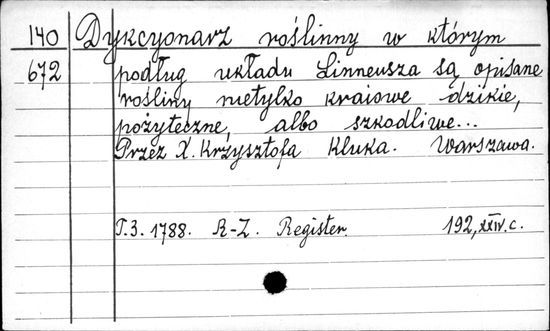 140 Dykcyonarz roślinny w którym
672 podług układu Linneusza są opisane
rośliny nietylko kraiowe dzikie,
pożyteczne, albo szkodliwe...
Przez X. Krzysztofa Kluka. Warszawa.
T.3. 1788. R-Z. Register. 192, XXIV.c.